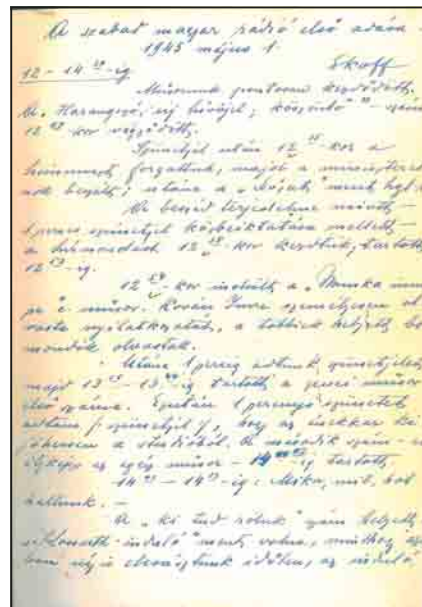 A szabad magyar rádió első adása
1945 május 1.
12 – 14 -ig Skoff
Műsorunk pontosan kezdődött.
A „Harangszó, új szünetjel, köszöntő"
12 kor végződött.
Szünetjel után 12 kor a
himnuszt forgattuk, majd a miniszterel
nök beszélt; utána a „Szózat" ment
Az beszéd terjedelme miatt –
1 perc szünetjel közbeiktatása mellett –
a hírmondást 12 kor kezdtük, tartott
12 -ig.
12 -kor indult a „Munka ünne
pe" c. műsor. Kovács Imre személyesen ol
vasta nyilatkozatát, a többiek helyett be
mondók olvastak.
Utána 1 percig adtunk szünetjelet,
majd 13 – 13 -ig tartott a zenei műsor
első száma. Ezután 1 percnyi szünetet
adtunk (szünetjel), hogy az énekkar ki
jöhessen a stúdióból. A második szám – 
az egész műsor – 14 -ig tartott.
14 – 14 -ig: Mikor, mit, hol
hallunk. –
A „ki tud róluk" szám helyett
„Kossuth induló" ment volna, minthogy
ban úgy is elcsúsztunk időben, az induló